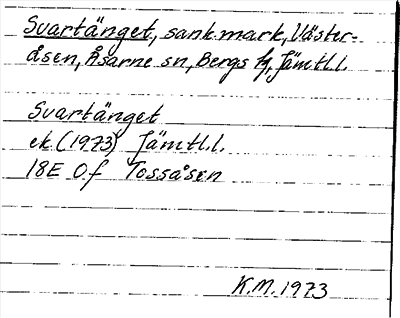 Svartänget, sank mark, Väster-
åsen, Åsarne sn, Bergs tg, Jämtl.l.
Svartänget
ek (1973) Jämtl.l.
18E 0f Tossåsen
K.M. 1973